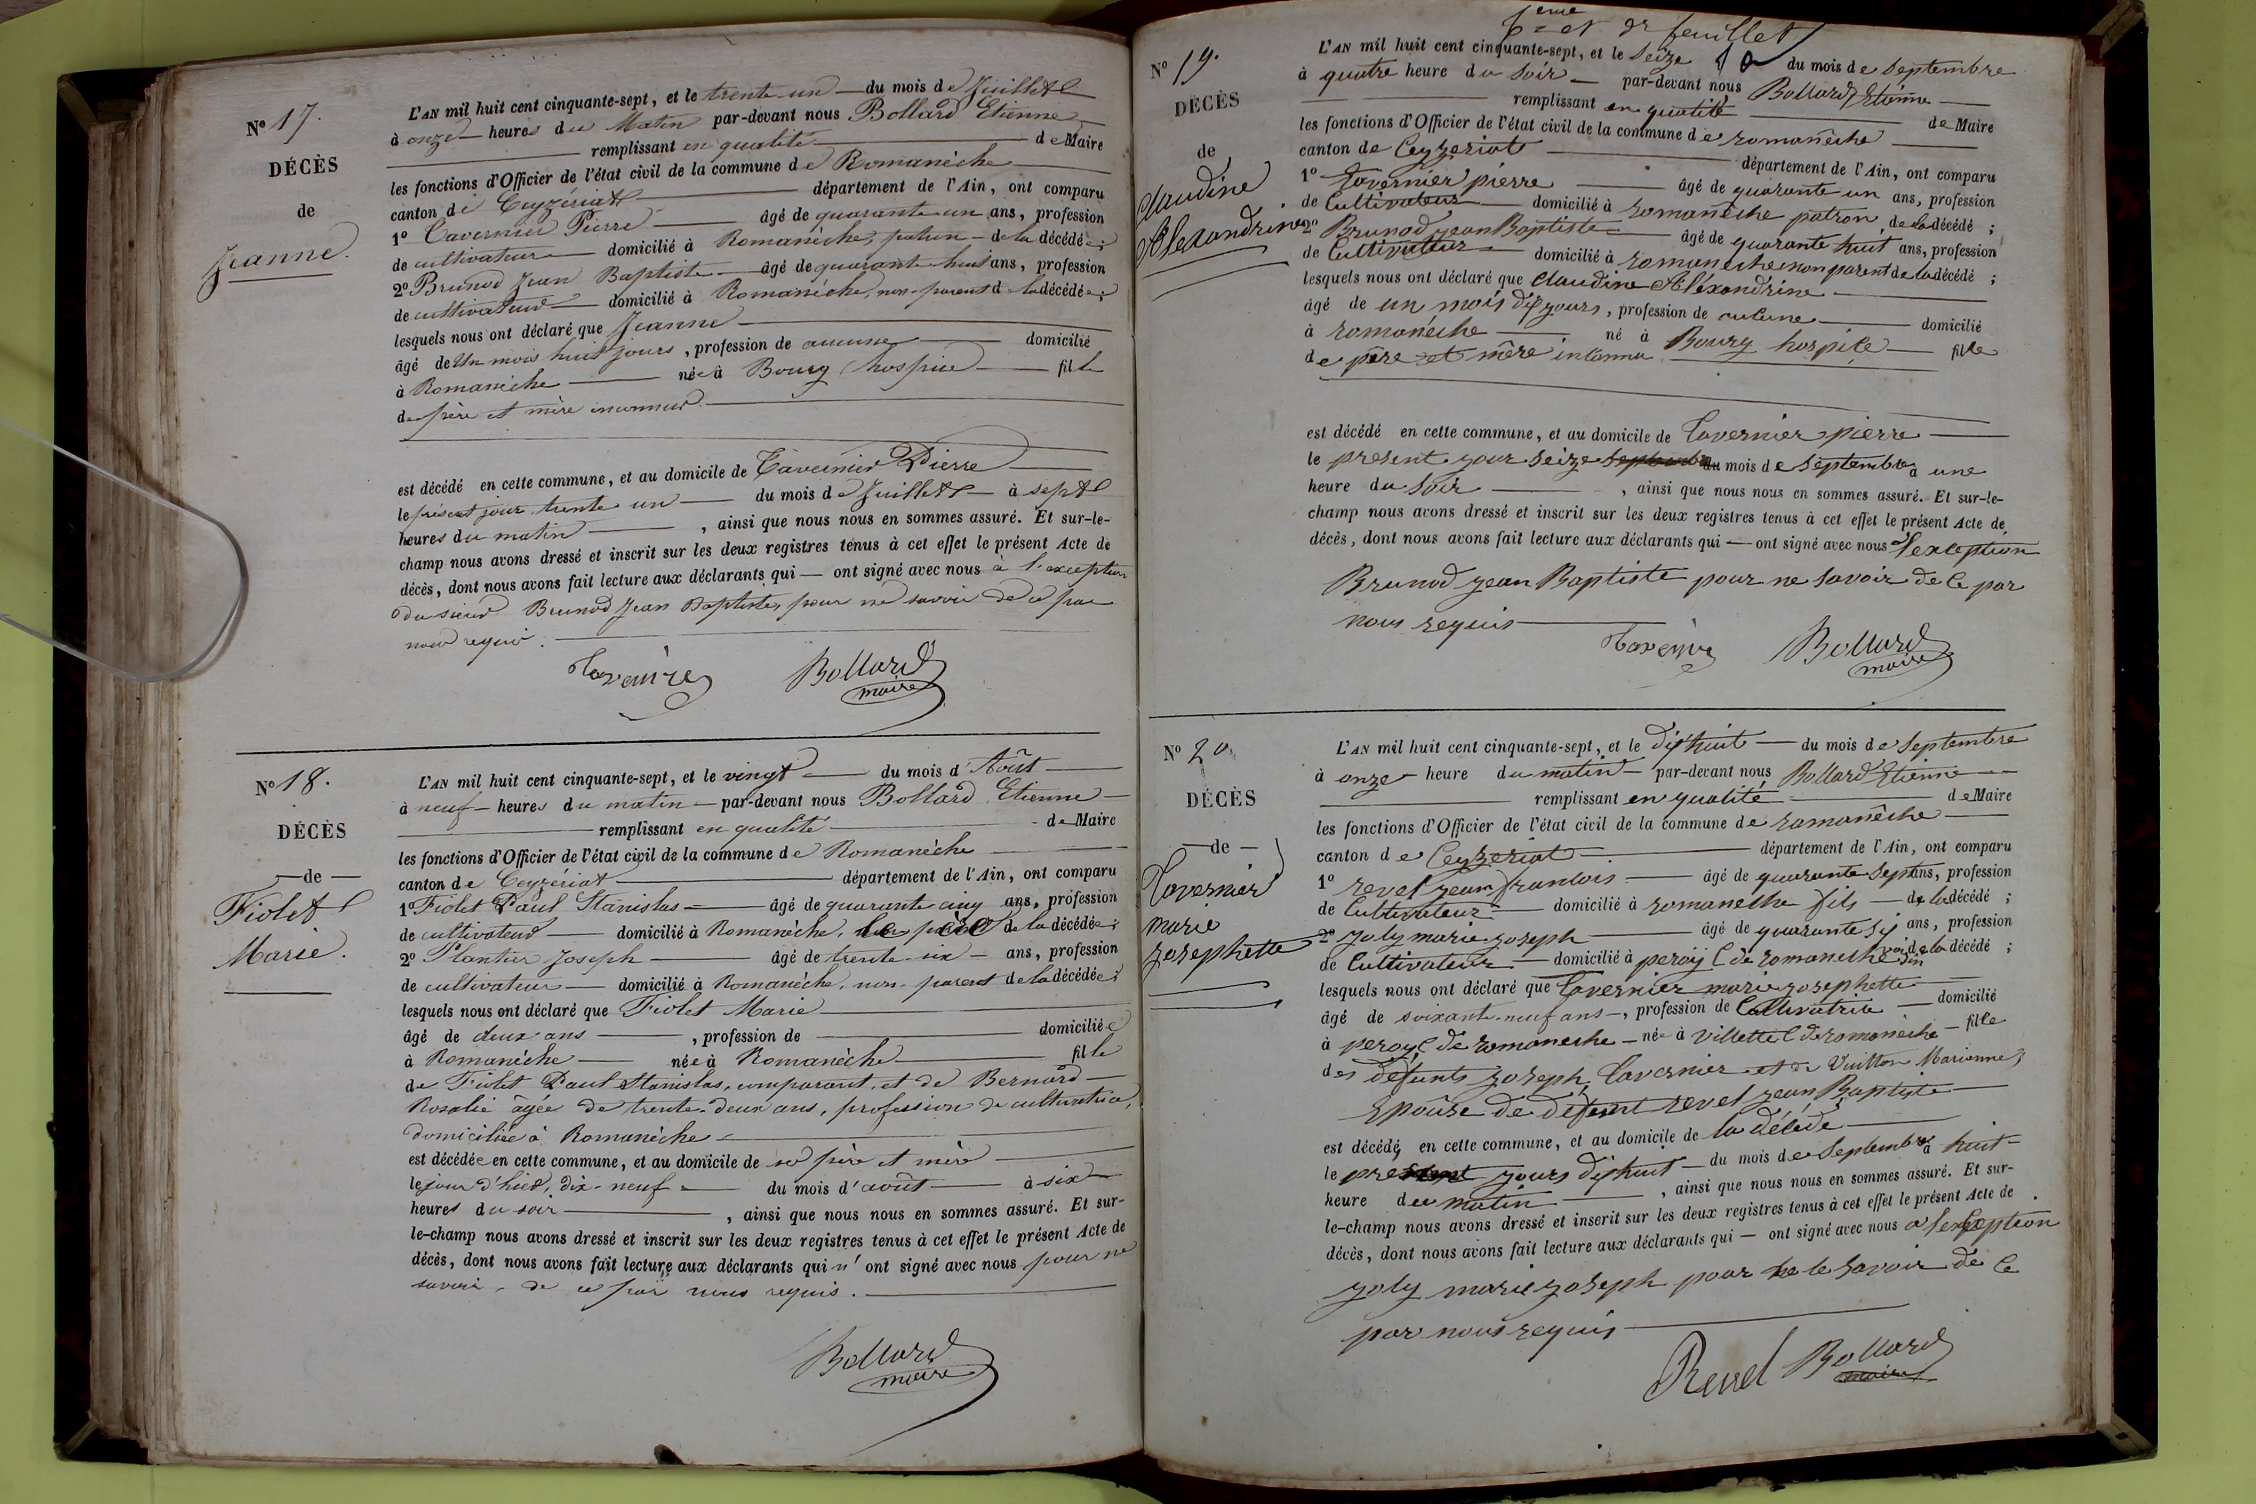 Nº 17.
DÉCÈS
de
Jeanne.
L'AN mil huit cent cinquante-sept, et le trente-un du mois de Juillet
à onze heures du Matin par-devant nous Bollard Etienne
remplissant en qualité de Maire
les fonctions d'Officier de l'état civil de la commune de Romanèche
canton de Ceyzériat département de l'Ain, ont comparu
1º Tavernier Pierre âgé de quarante un ans, profession
de cultivateur domicilié à Romanèche, patron de la décédée;
2º Brunod Jean Baptiste âgé de quarante-huit ans, profession
de cultivateur domicilié à Romanèche, non-parent de la décédée;
lesquels nous ont déclaré que Jeanne
âgé de Un mois huit jours, profession de aucune domicilié
à Romanèche née à Bourg hospice fille
de père et mère inconnus.
est décédé en cette commune, et au domicile de Tavernier Pierre
le présent jour trente un du mois de Juillet à sept
heures du matin, ainsi que nous nous en sommes assuré. Et sur-le-
champ nous avons dressé et inscrit sur les deux registres tenus à cet effet le présent Acte de
décès, dont nous avons fait lecture aux déclarants qui — ont signé avec nous à l'exception
du sieur Brunod Jean Baptiste, pour ne savoir de ce par
nous requis.
Bollard
maire
Nº 18.
DÉCÈS
de
Fiolet
Marie.
L'AN mil huit cent cinquante-sept, et le vingt du mois d'Août
à neuf heures du matin par-devant nous Bollard Etienne
remplissant en qualité de Maire
les fonctions d'Officier de l'état civil de la commune de Romanèche
canton de Ceyzériat département de l'Ain, ont comparu
1º Fiolet Paul Stanislas âgé de quarante cinq ans, profession
de cultivateur domicilié à Romanèche, le père de la décédée;
2º Plantier Joseph âgé de trente-six ans, profession
de cultivateur domicilié à Romanèche, non-parent de la décédée;
lesquels nous ont déclaré que Fiolet Marie
âgé de deux ans, profession de domiciliée
à Romanèche née à Romanèche fille
de Fiolet Paul Stanislas, comparant, et de Bernard
Rosalie âgée de trente-deux ans, profession de cultivatrice,
domiciliée à Romanèche
est décédée en cette commune, et au domicile de ses père et mère
le jour d'hier, dix-neuf du mois d'août à six
heures du soir, ainsi que nous nous en sommes assuré. Et sur-
le-champ nous avons dressé et inscrit sur les deux registres tenus à cet effet le présent Acte de
décès, dont nous avons fait lecture aux déclarants qui n'ont signé avec nous pour ne
savoir, de ce par nous requis.
Bollard
maire
6eme et dr feuillet
Nº 19.
DÉCÈS
de
Claudine
Aléxandrine
L'AN mil huit cent cinquante-sept, et le seize du mois de septembre
à quatre heure du soir par-devant nous Bollard Etienne
remplissant en qualité de Maire
les fonctions d'Officier de l'état civil de la commune de romanèche
canton de Ceyzeriat département de l'Ain, ont comparu
1º Tavernier pierre âgé de quarante un ans, profession
de Cultivateur domicilié à romanèche patron de la décédé;
2º Brunod jean Baptiste âgé de quarante huit ans, profession
de Cultivateur domicilié à romaneche non parent de la décédé;
lesquels nous ont déclaré que Claudine Aléxandrine
âgé de un mois dix jours, profession de aucune domicilié
à romanèche né à Bourg hospice fille
de père et mère inconnu
est décédé en cette commune, et au domicile de Tavernier pierre
le présent jour seize septembre du mois de septembre à une
heure du soir, ainsi que nous nous en sommes assuré. Et sur-le-
champ nous avons dressé et inscrit sur les deux registres tenus à cet effet le présent Acte de
décès, dont nous avons fait lecture aux déclarants qui — ont signé avec nous a l'exception
Brunod jean Baptiste pour ne savoir de ce par
nous requis
Bollard
maire
Nº 20
DÉCÈS
de
Tavernier
marie
josephette
L'AN mil huit cent cinquante-sept, et le dix huit du mois de septembre
à onze heure du matin par-devant nous Bollard Etienne
remplissant en qualité de Maire
les fonctions d'Officier de l'état civil de la commune de romanèche
canton de Ceyzeriat département de l'Ain, ont comparu
1º revel jean francois âgé de quarante sept ans, profession
de Cultivateur domicilié à romaneche fils de la décédé;
2º joly marie joseph âgé de quarante six ans, profession
de Cultivateur domicilié à peroy C de romaneche voisin de la décédé;
lesquels nous ont déclaré que Tavernier marie josephette
âgé de soixante-neuf ans, profession de Cultivatrice domicilié
à peroy C de romaneche née à villette C de romanèche fille
des défunts joseph Tavernier et de Vuitton Marianne,
Epouse de défunt revel jean Baptiste
est décédé en cette commune, et au domicile de la décédé
le present jours dix huit du mois de septembre à huit
heure du matin, ainsi que nous nous en sommes assuré. Et sur-
le-champ nous avons dressé et inscrit sur les deux registres tenus à cet effet le présent Acte de
décès, dont nous avons fait lecture aux déclarants qui — ont signé avec nous a l'exception
joly marie joseph pour ne le savoir de ce
par nous requis
Revel Bollard
maire